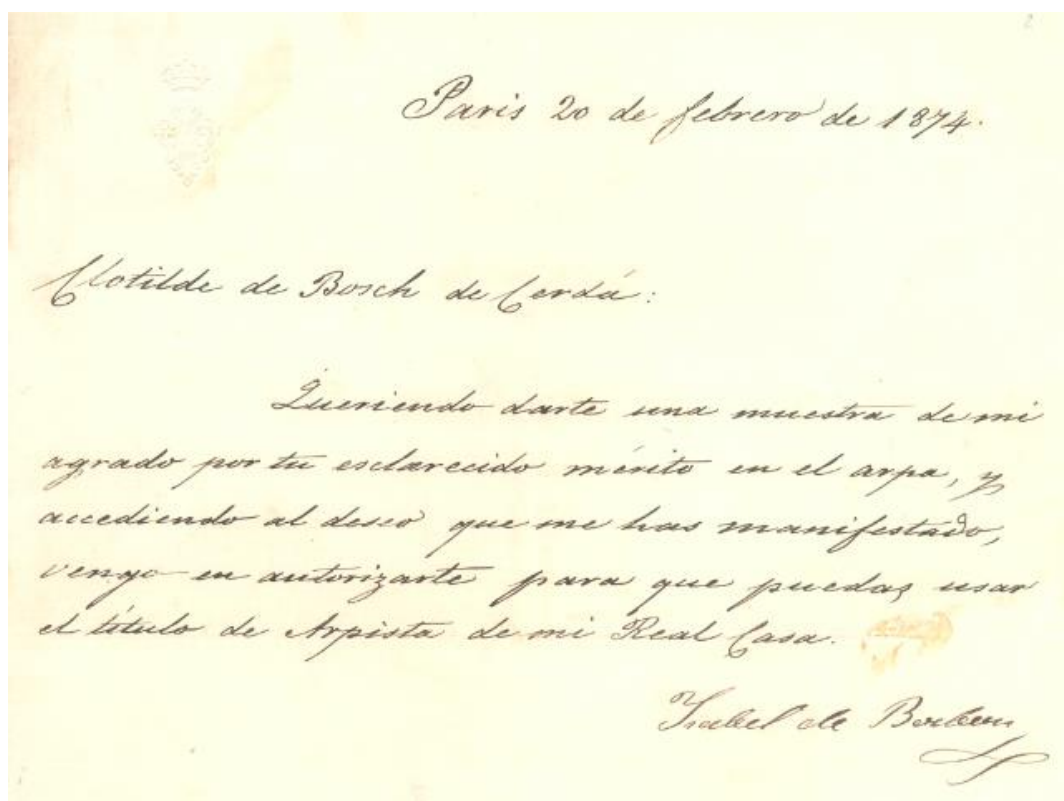 Paris 20 de febrero de 1874.
Clotilde de Bosch de Cerdá:
Queriendo darte una muestra de mi
agrado por tu esclarecido mérito en el arpa, y
accediendo al deseo que me has manifestado,
vengo en autorizarte para que puedas usar
el título de Arpista de mi Real Casa.
Isabel de Borbon